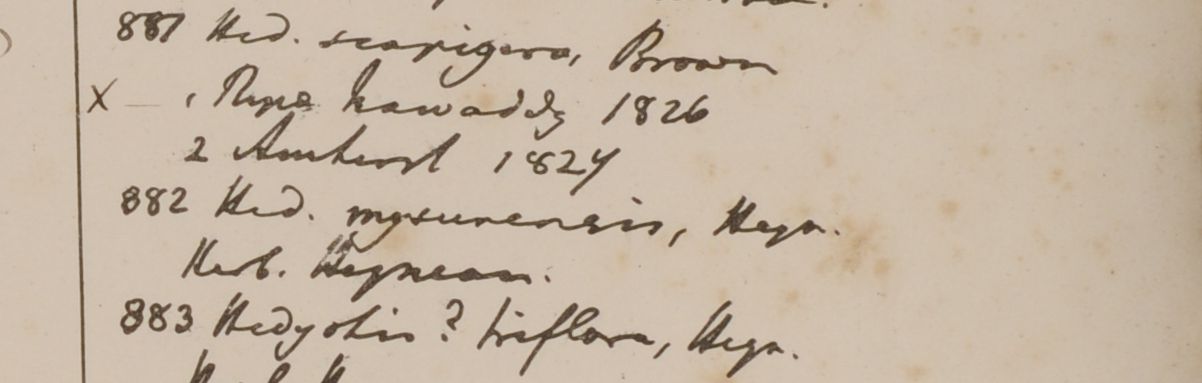 881 Hed. scapigera, Brown
X — , Ripa Irawaddy 1826
2 Amherst 1827
882 Hed. mysurensis, Heyn.
Herb. Heynean.
883 Hedyotis ? triflora, Heyn.